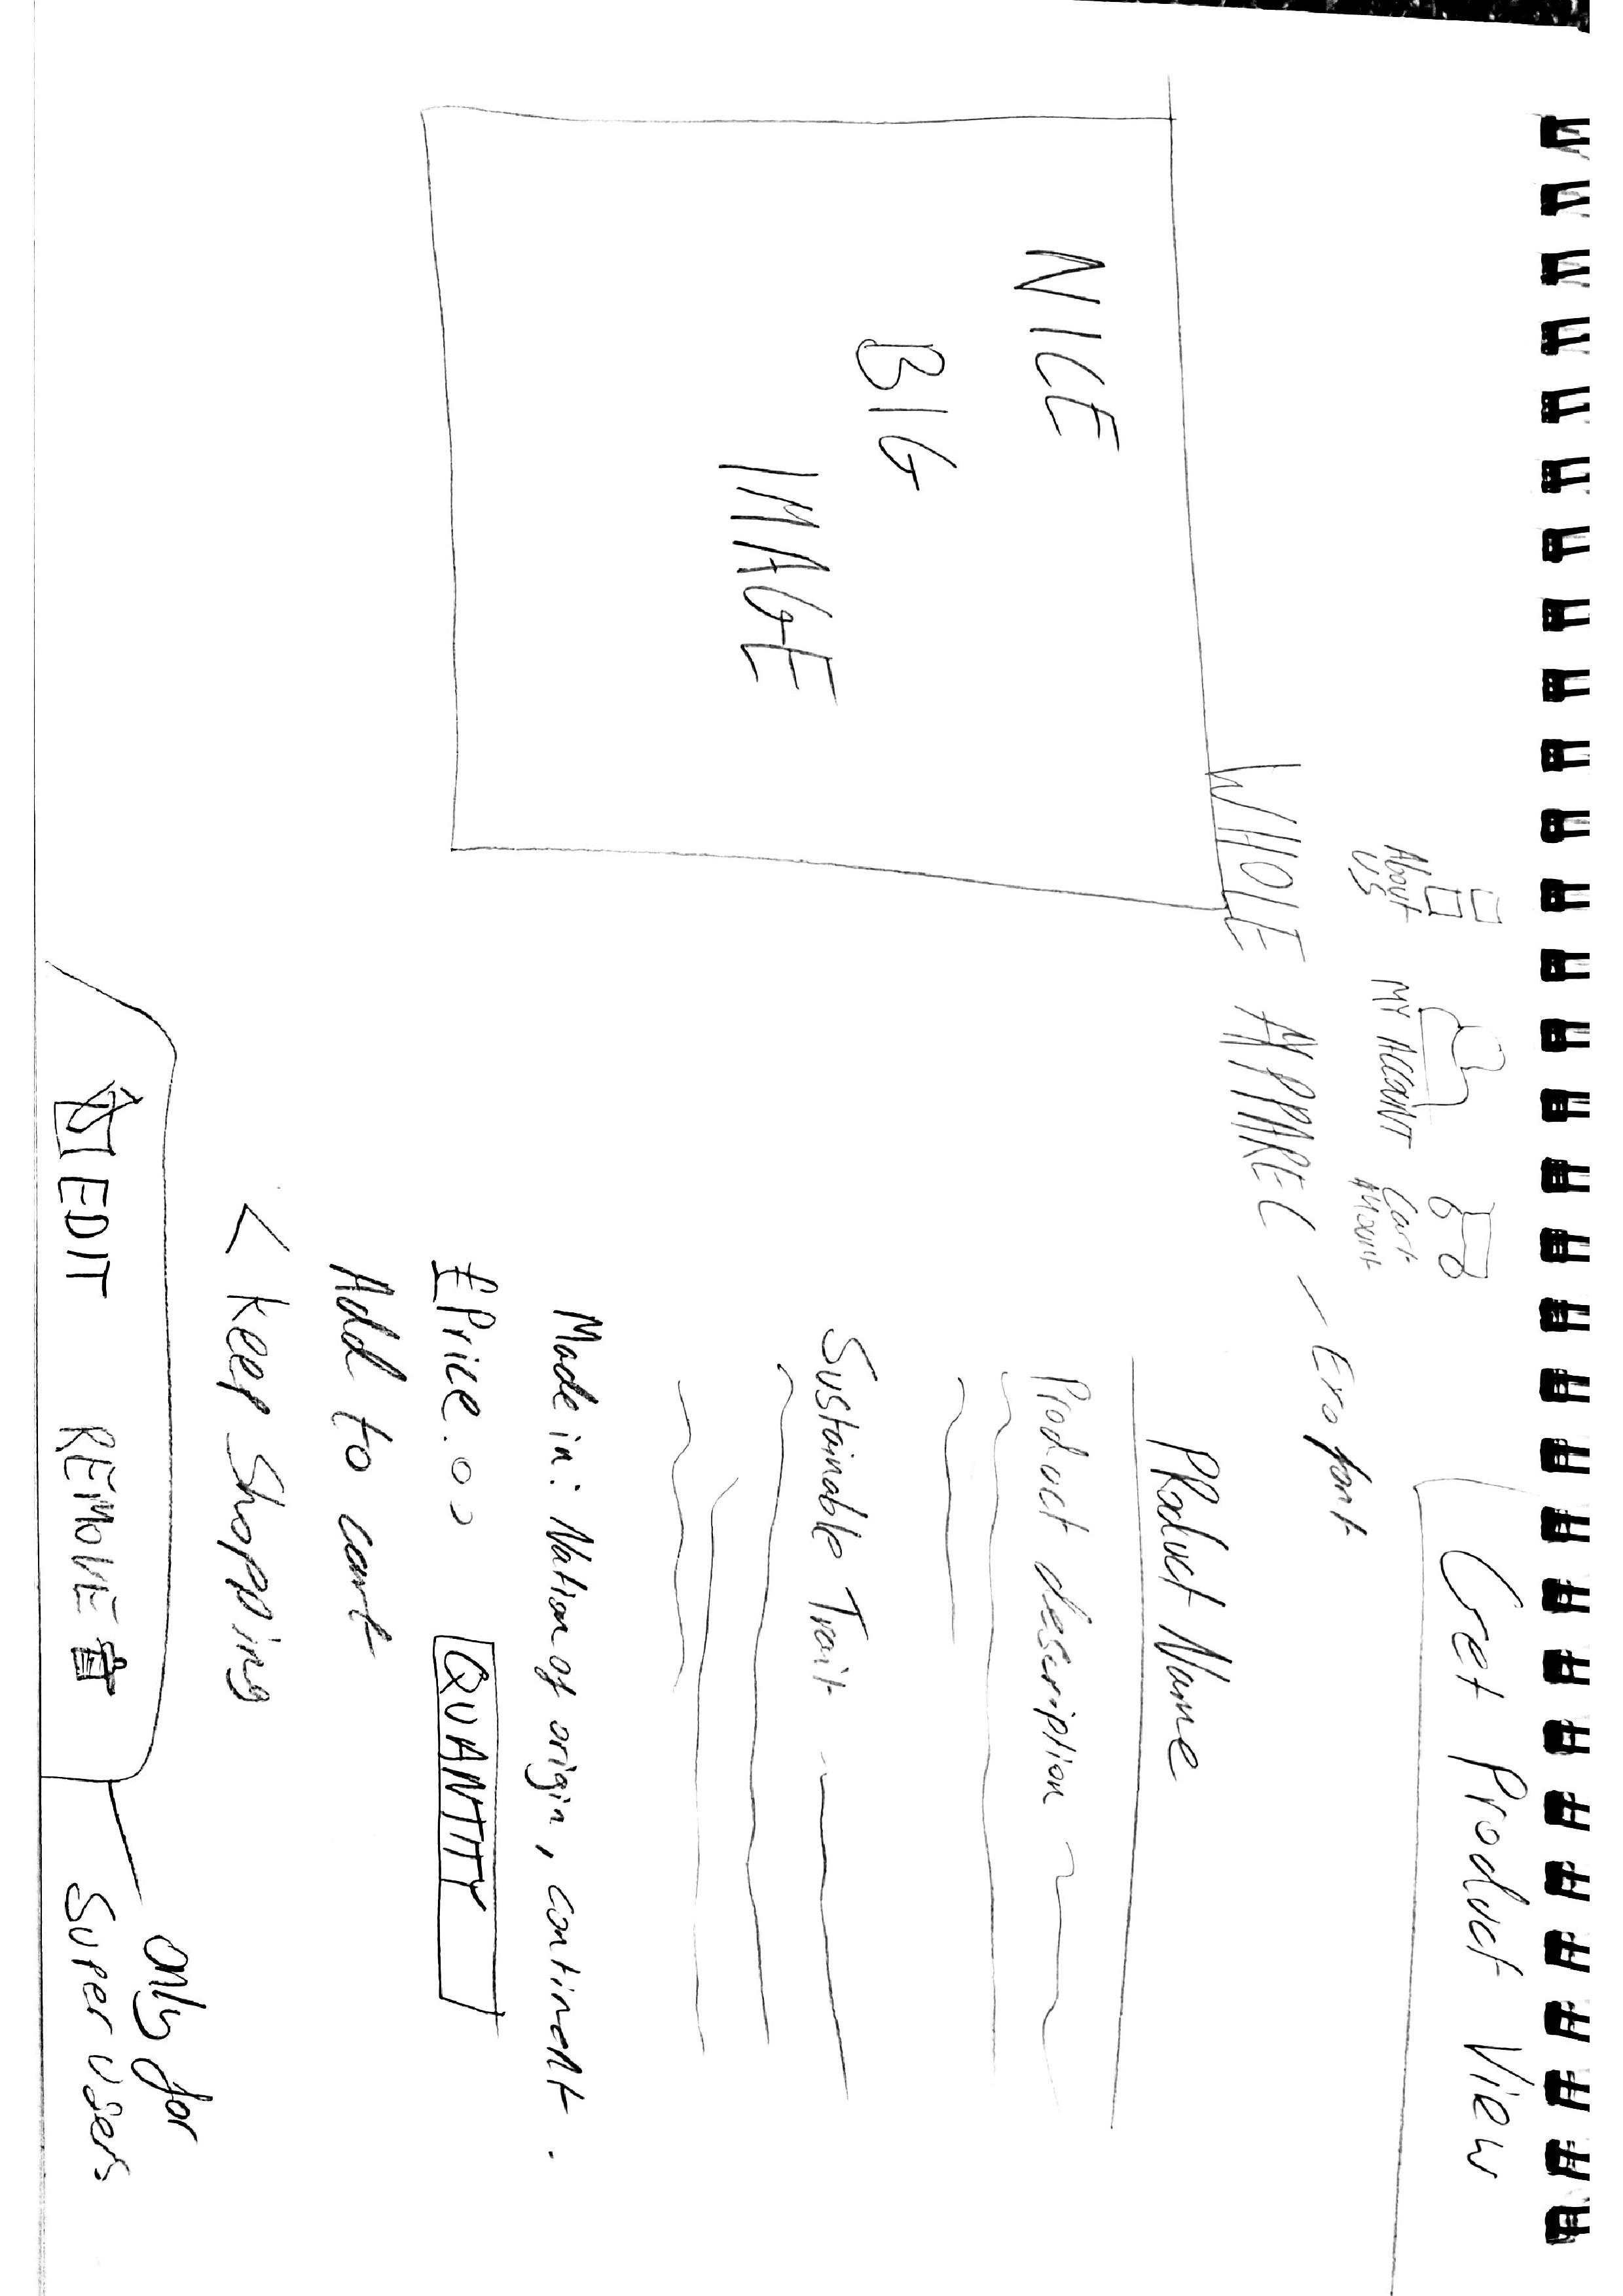 Get Product View
About
US
MY ACCOUNT
Cart
Amount
WHOLE APPAREL
Exo font
NICE
BIG
IMAGE
Product Name
Product description
Sustainable Trait
Made in: Nation of origin, continent.
£Price.00
QUANTITY
Add to cart
< Keep Shopping
EDIT REMOVE
only for
Super users